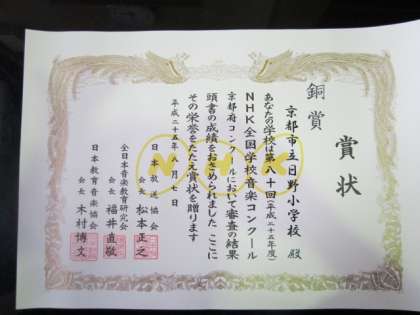 賞状
銅賞
京都市立日野小学校 殿
あなたの学校は第八十回(平成二十五年度)
NHK全国学校音楽コンクール
京都府コンクールにおいて審査の結果
頭書の成績をおさめられました ここに
その栄誉をたたえ賞状を贈ります
平成二十五年八月七日
日本放送協会
会長 松本正之
全日本音楽教育研究会
会長 福井直敬
日本教育音楽協会
会長 木村博文